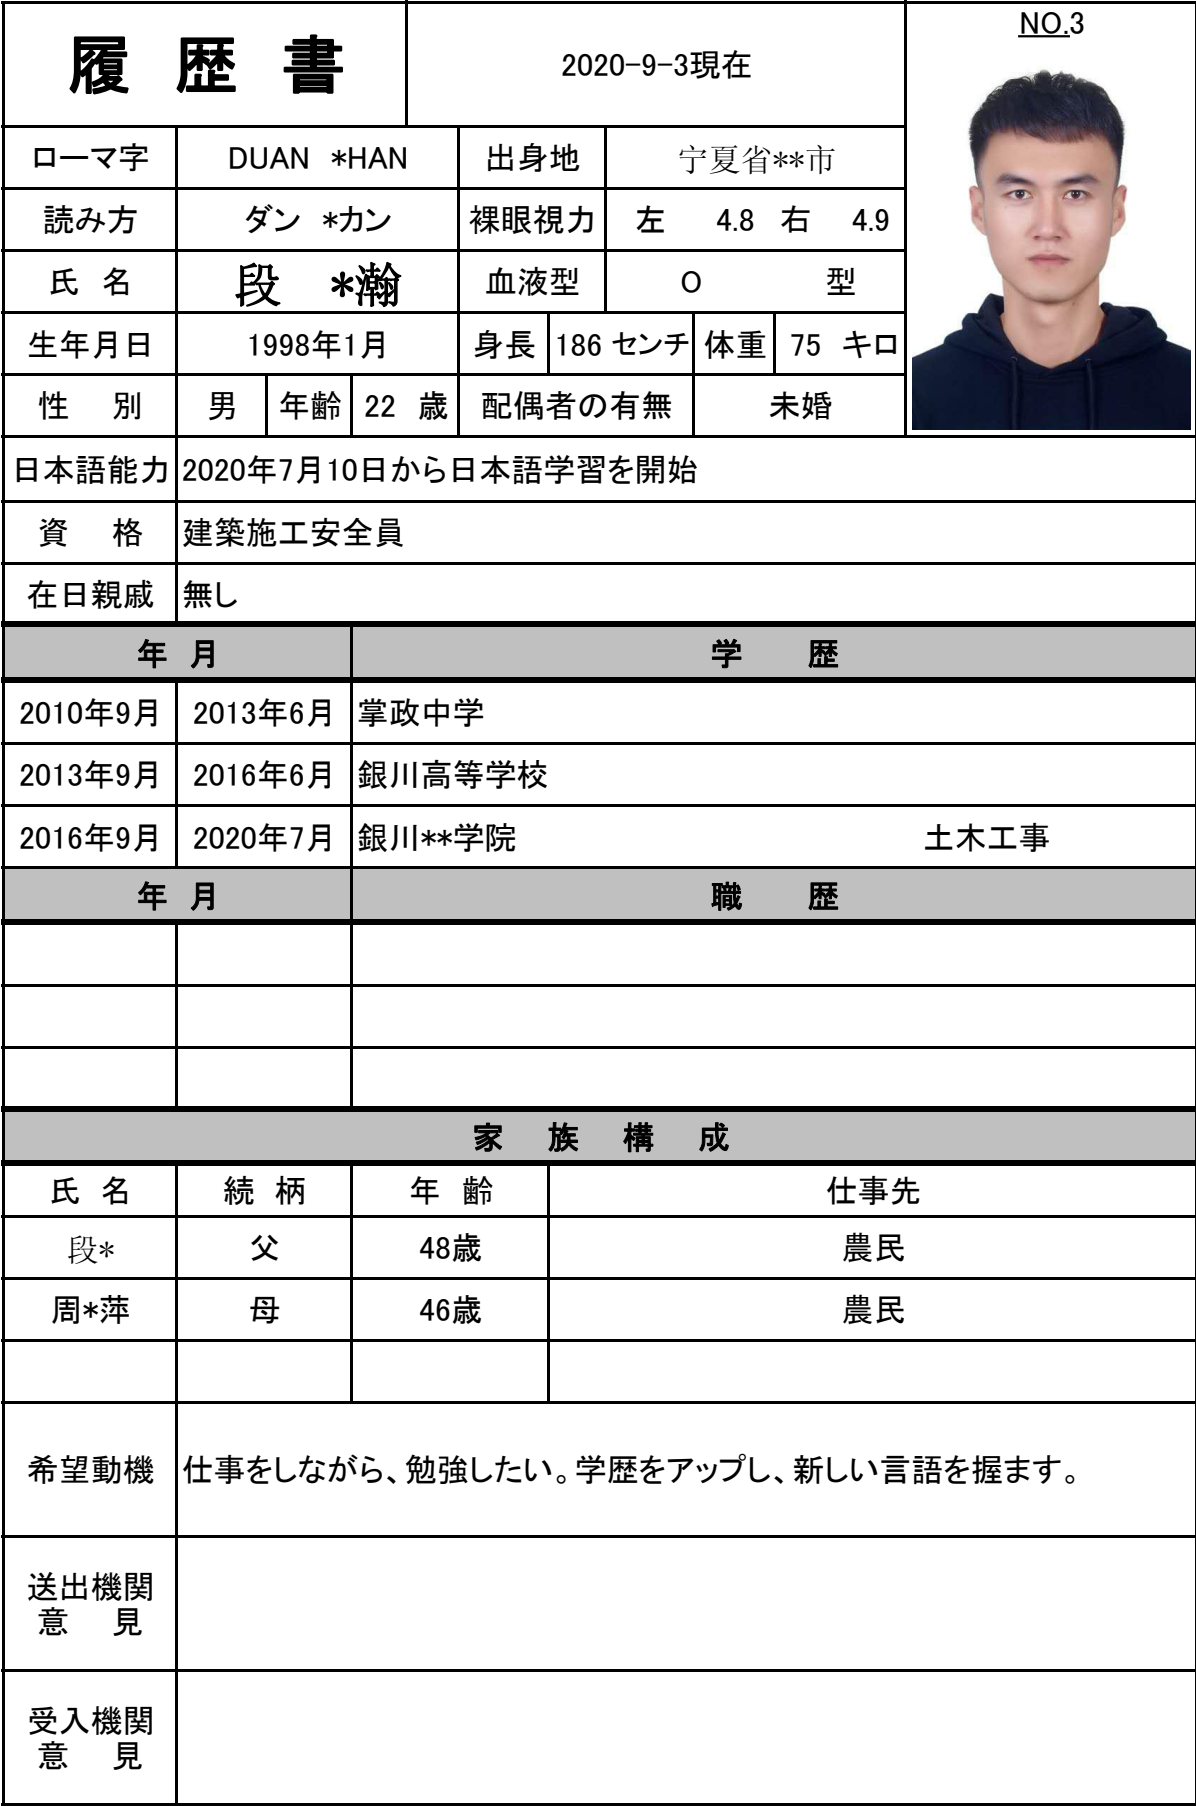 NO.3
履 歴 書 2020-9-3現在
ローマ字 DUAN *HAN 出身地 宁夏省**市
読み方 ダン *カン 裸眼視力 左 4.8 右 4.9
氏 名 段 *瀚 血液型 O 型
生年月日 1998年1月 身長 186 センチ 体重 75 キロ
性 別 男 年齢 22 歳 配偶者の有無 未婚
日本語能力 2020年7月10日から日本語学習を開始
資 格 建築施工安全員
在日親戚 無し
年 月 学 歴
2010年9月 2013年6月 掌政中学
2013年9月 2016年6月 銀川高等学校
2016年9月 2020年7月 銀川**学院 土木工事
年 月 職 歴
家 族 構 成
氏 名 続 柄 年 齢 仕事先
段* 父 48歳 農民
周*萍 母 46歳 農民
希望動機 仕事をしながら、勉強したい。学歴をアップし、新しい言語を握ます。
送出機関
意 見
受入機関
意 見